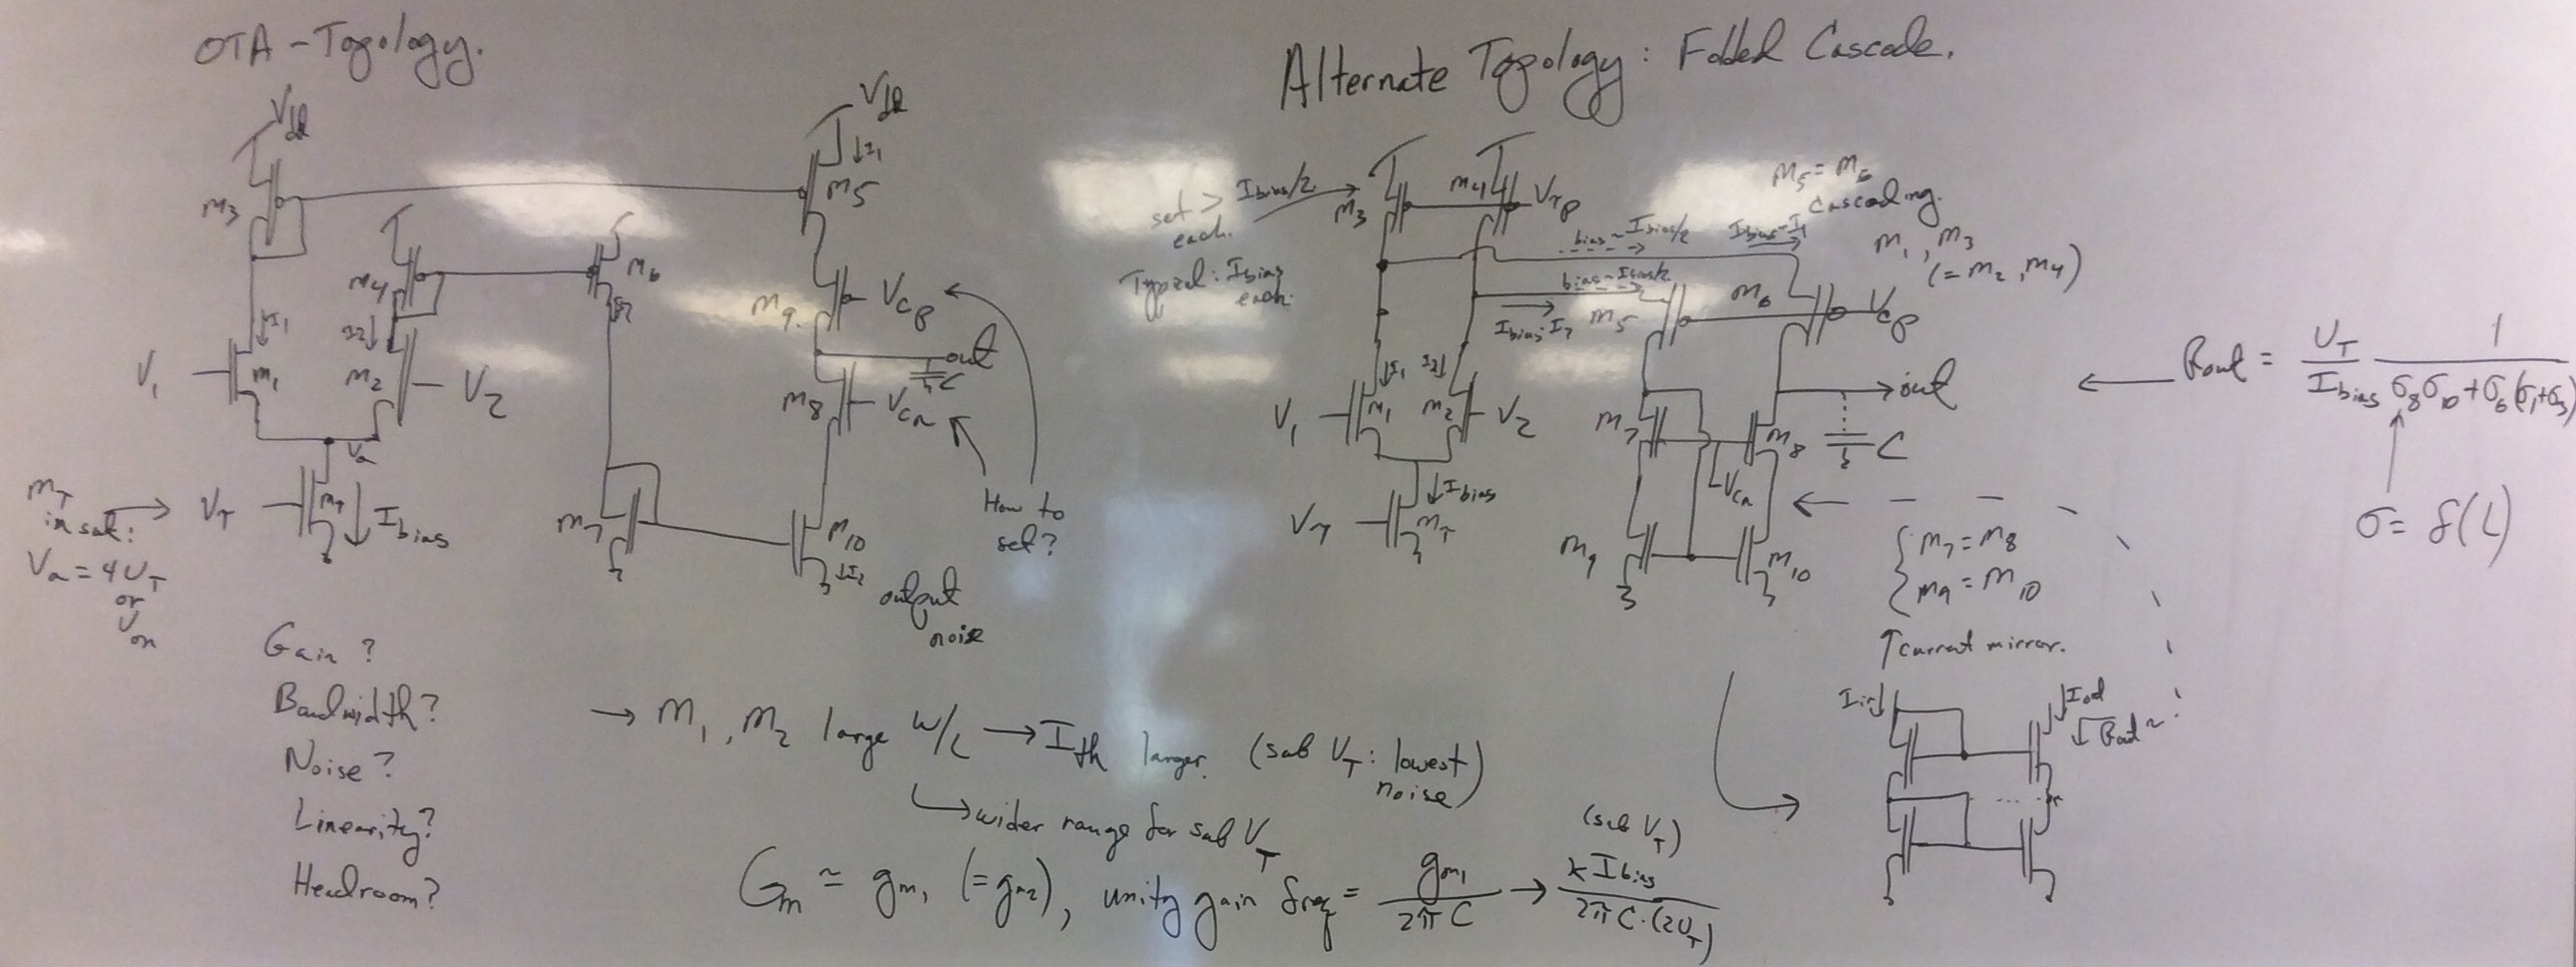 OTA - Topology.
Vdd
M3
M4
I1
I2
V1
M1
M2
V2
Va
MT
in sat:
Va = 4UT
or
Von
VT
MT
Ibias
M6
I2
M7
Vdd
I1
M5
M9
Vcp
out
C
M8
Vcn
How to
set?
M10
I2
output
noise
Gain?
Bandwidth?
Noise?
Linearity?
Headroom?
→ M1, M2 large W/L → Ith larger. (sub VT: lowest
noise)
↳ wider range for sub VT
Gm ≃ gm1 (=gm2), unity gain freq = gm1 / 2πC → κ Ibias / 2πC·(2UT)
(sub VT)
Alternate Topology: Folded Cascode.
set > Ibias/2
each.
Typical: Ibias
each.
M3
M4
Vτp
bias ~ Ibias/2
Ibias-I1
bias ~ Ibias/2
Ibias-I2
M5 = M6
Cascoding.
M1, M3
(= M2, M4)
M5
M6
Vcp
I1
I2
V1
M1
M2
V2
Ibias
Vτ
MT
M7
M8
Vcn
out
C
M9
M10
M7 = M8
M9 = M10
↑ Current mirror.
Iin
Iout
Rout ~
Rout = UT / Ibias 1 / σ8σ10 + σ6(σ1+σ3)
σ = f(L)